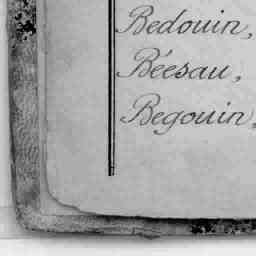 Bedouin,
Béesau,
Begouin,